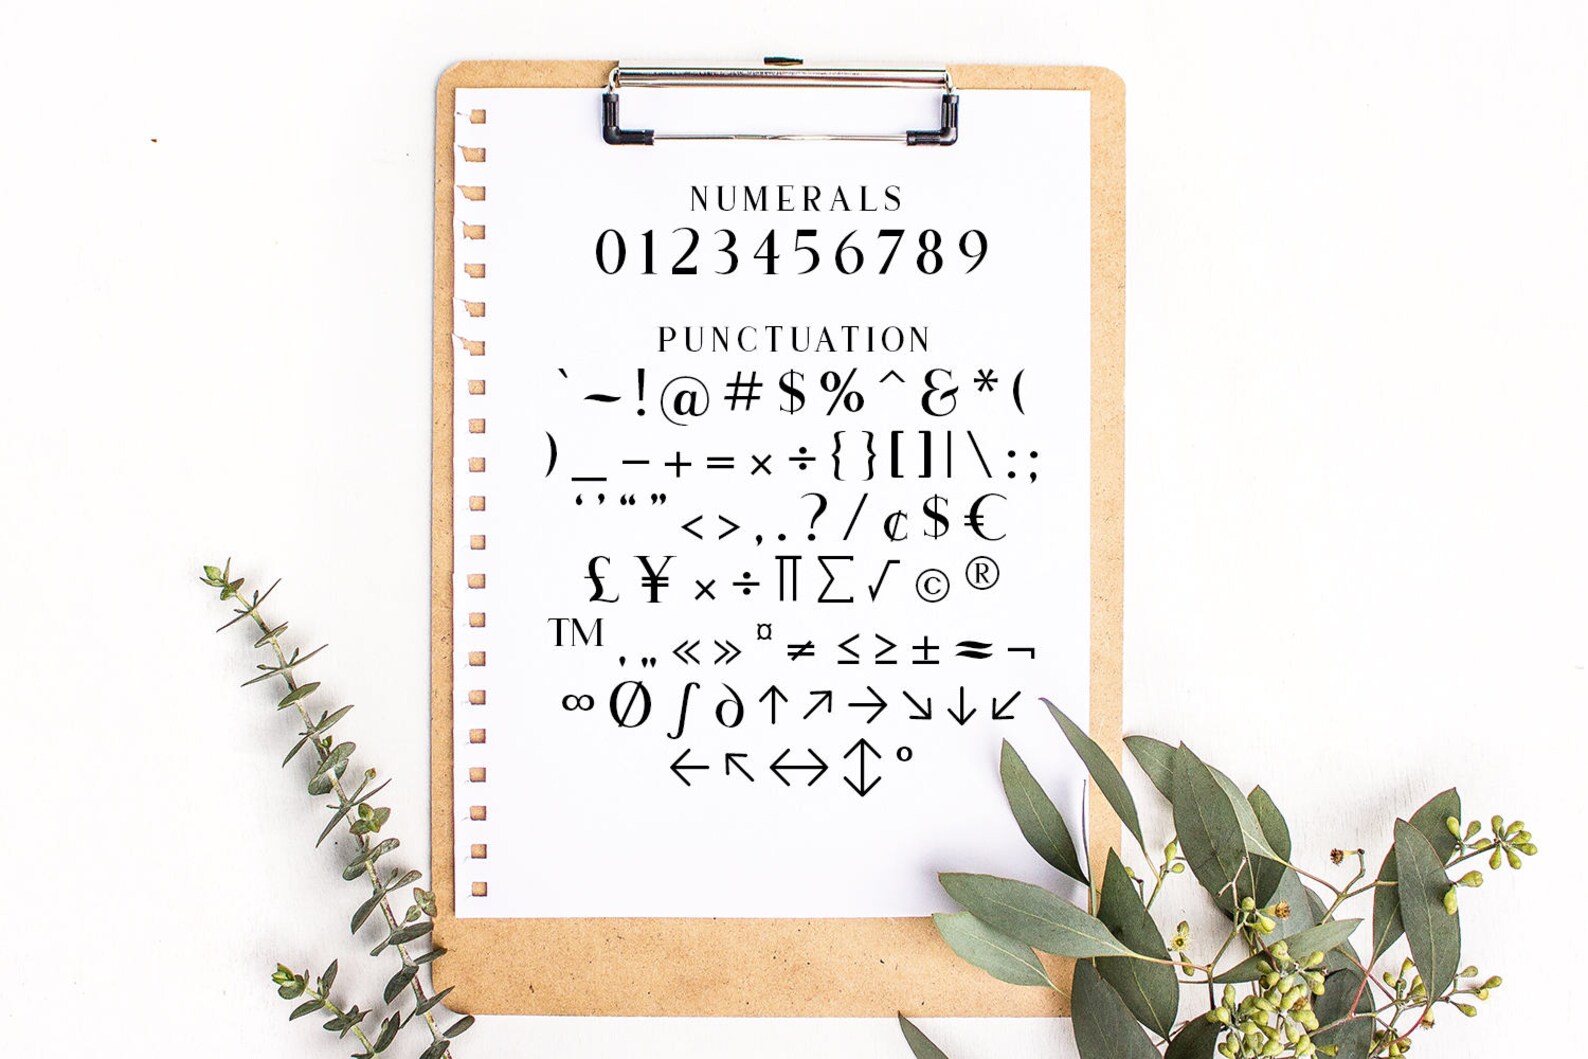 NUMERALS
0123456789
PUNCTUATION
` ~ ! @ # $ % ^ & * (
) _ − + = × ÷ { } [ ] | \ : ;
‘ ’ “ ” < > , . ? / ¢ $ €
£ ¥ × ÷ ∏ ∑ √ © ®
™ ‚ „ « » ¤ ≠ ≤ ≥ ± ≈ ¬
∞ Ø ∫ ∂ ↑ ↗ → ↘ ↓ ↙
← ↖ ↔ ↕ º